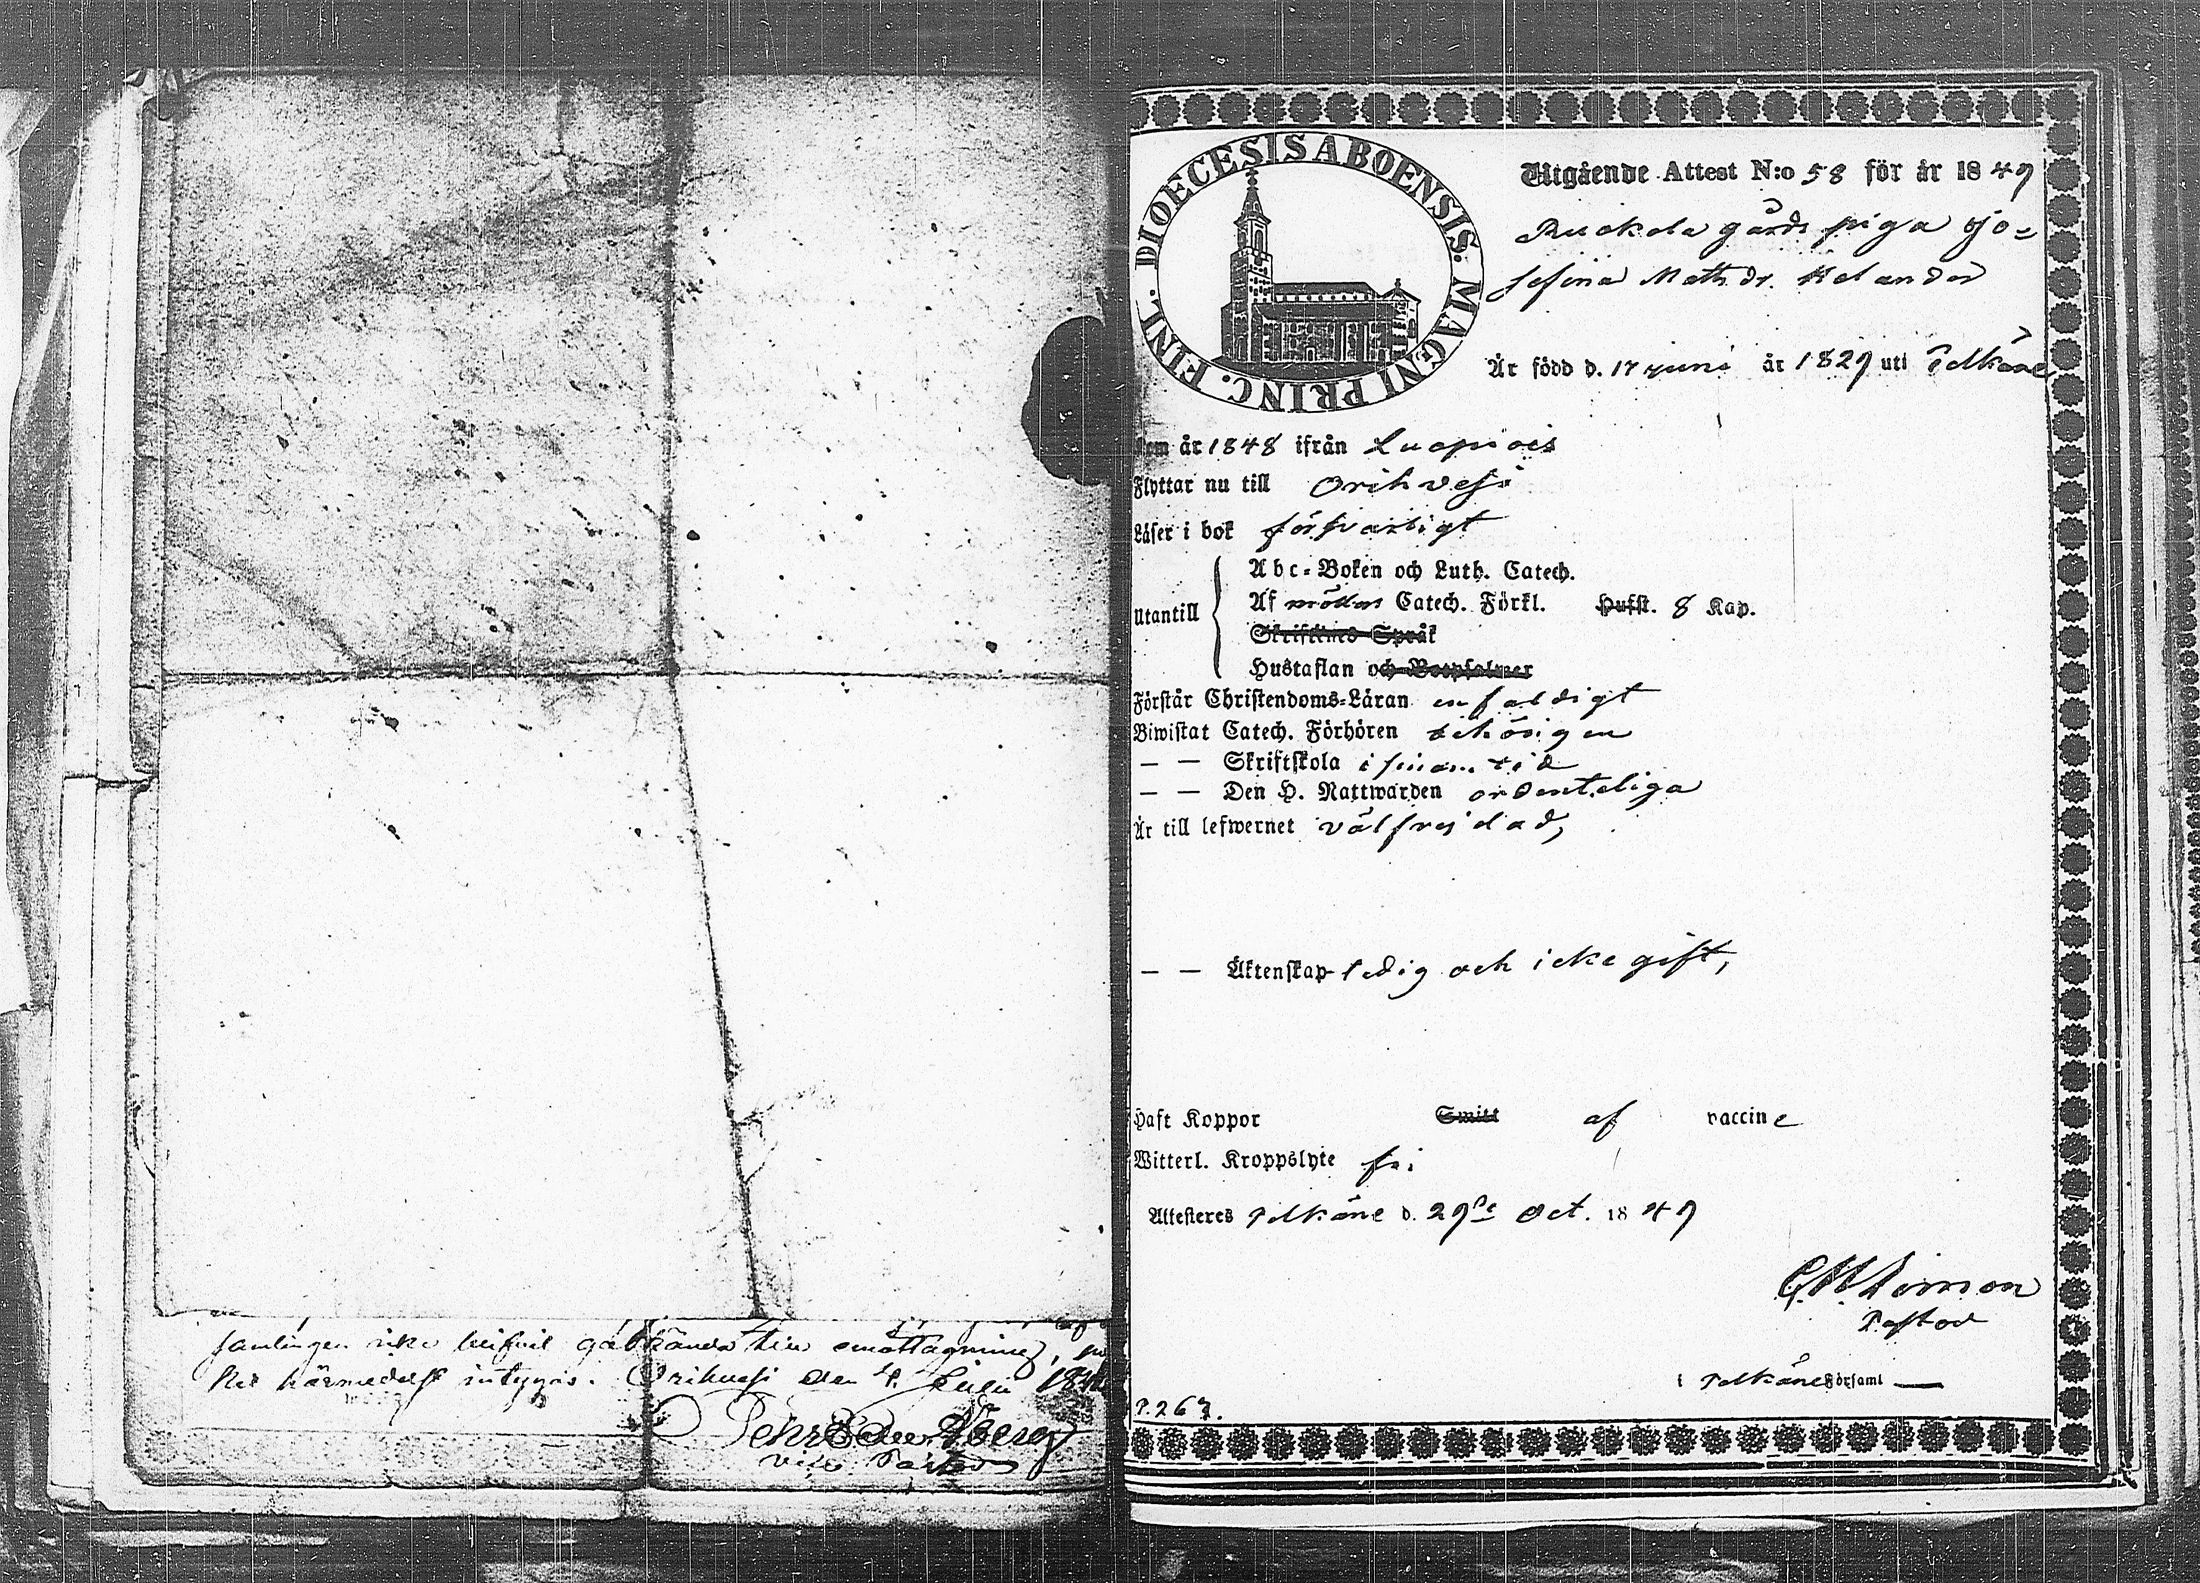 samlingen icke befunnit godkända till emottagning,
hermedelst intygas. Orihvesi den 4 Julii 184
Pehr Edv. Åberg
vice Pastor
DIOECESIS ABOENSIS. MAGNI PRINC. FINL.
Utgående Attest N:o 58 för år 1849
Ruokola gårds piga Jo=
sefina Mathsdr. Helander
Är född d. 17 juni år 1829 uti Pelkäne
Kom år 1848 ifrån Luopiois
Flyttar nu till Orihvesi
Läser i bok försvarligt
Utantill
Abc-Boken och Luth. Catech.
Af möllers Catech. Förkl. Hufst. 8 Kap.
Skriftenes Språk
Hustaflan och Botpsalmer
Förstår Christendoms-Läran enfaldigt
Biwistat Catech. Förhören behörigen
— — Skriftskola i sinom tid
— — Den H. Nattwarden ordenteliga
Är till lefwernet välfrejdad,
— — Äktenskap ledig och icke gift,
Haft Koppor Smitt af vaccine
Witterl. Kroppslyte fri
Attesteres Pelkäne d. 29de Oct. 1849
Pastor
i Pelkäne Församl
P. 263.